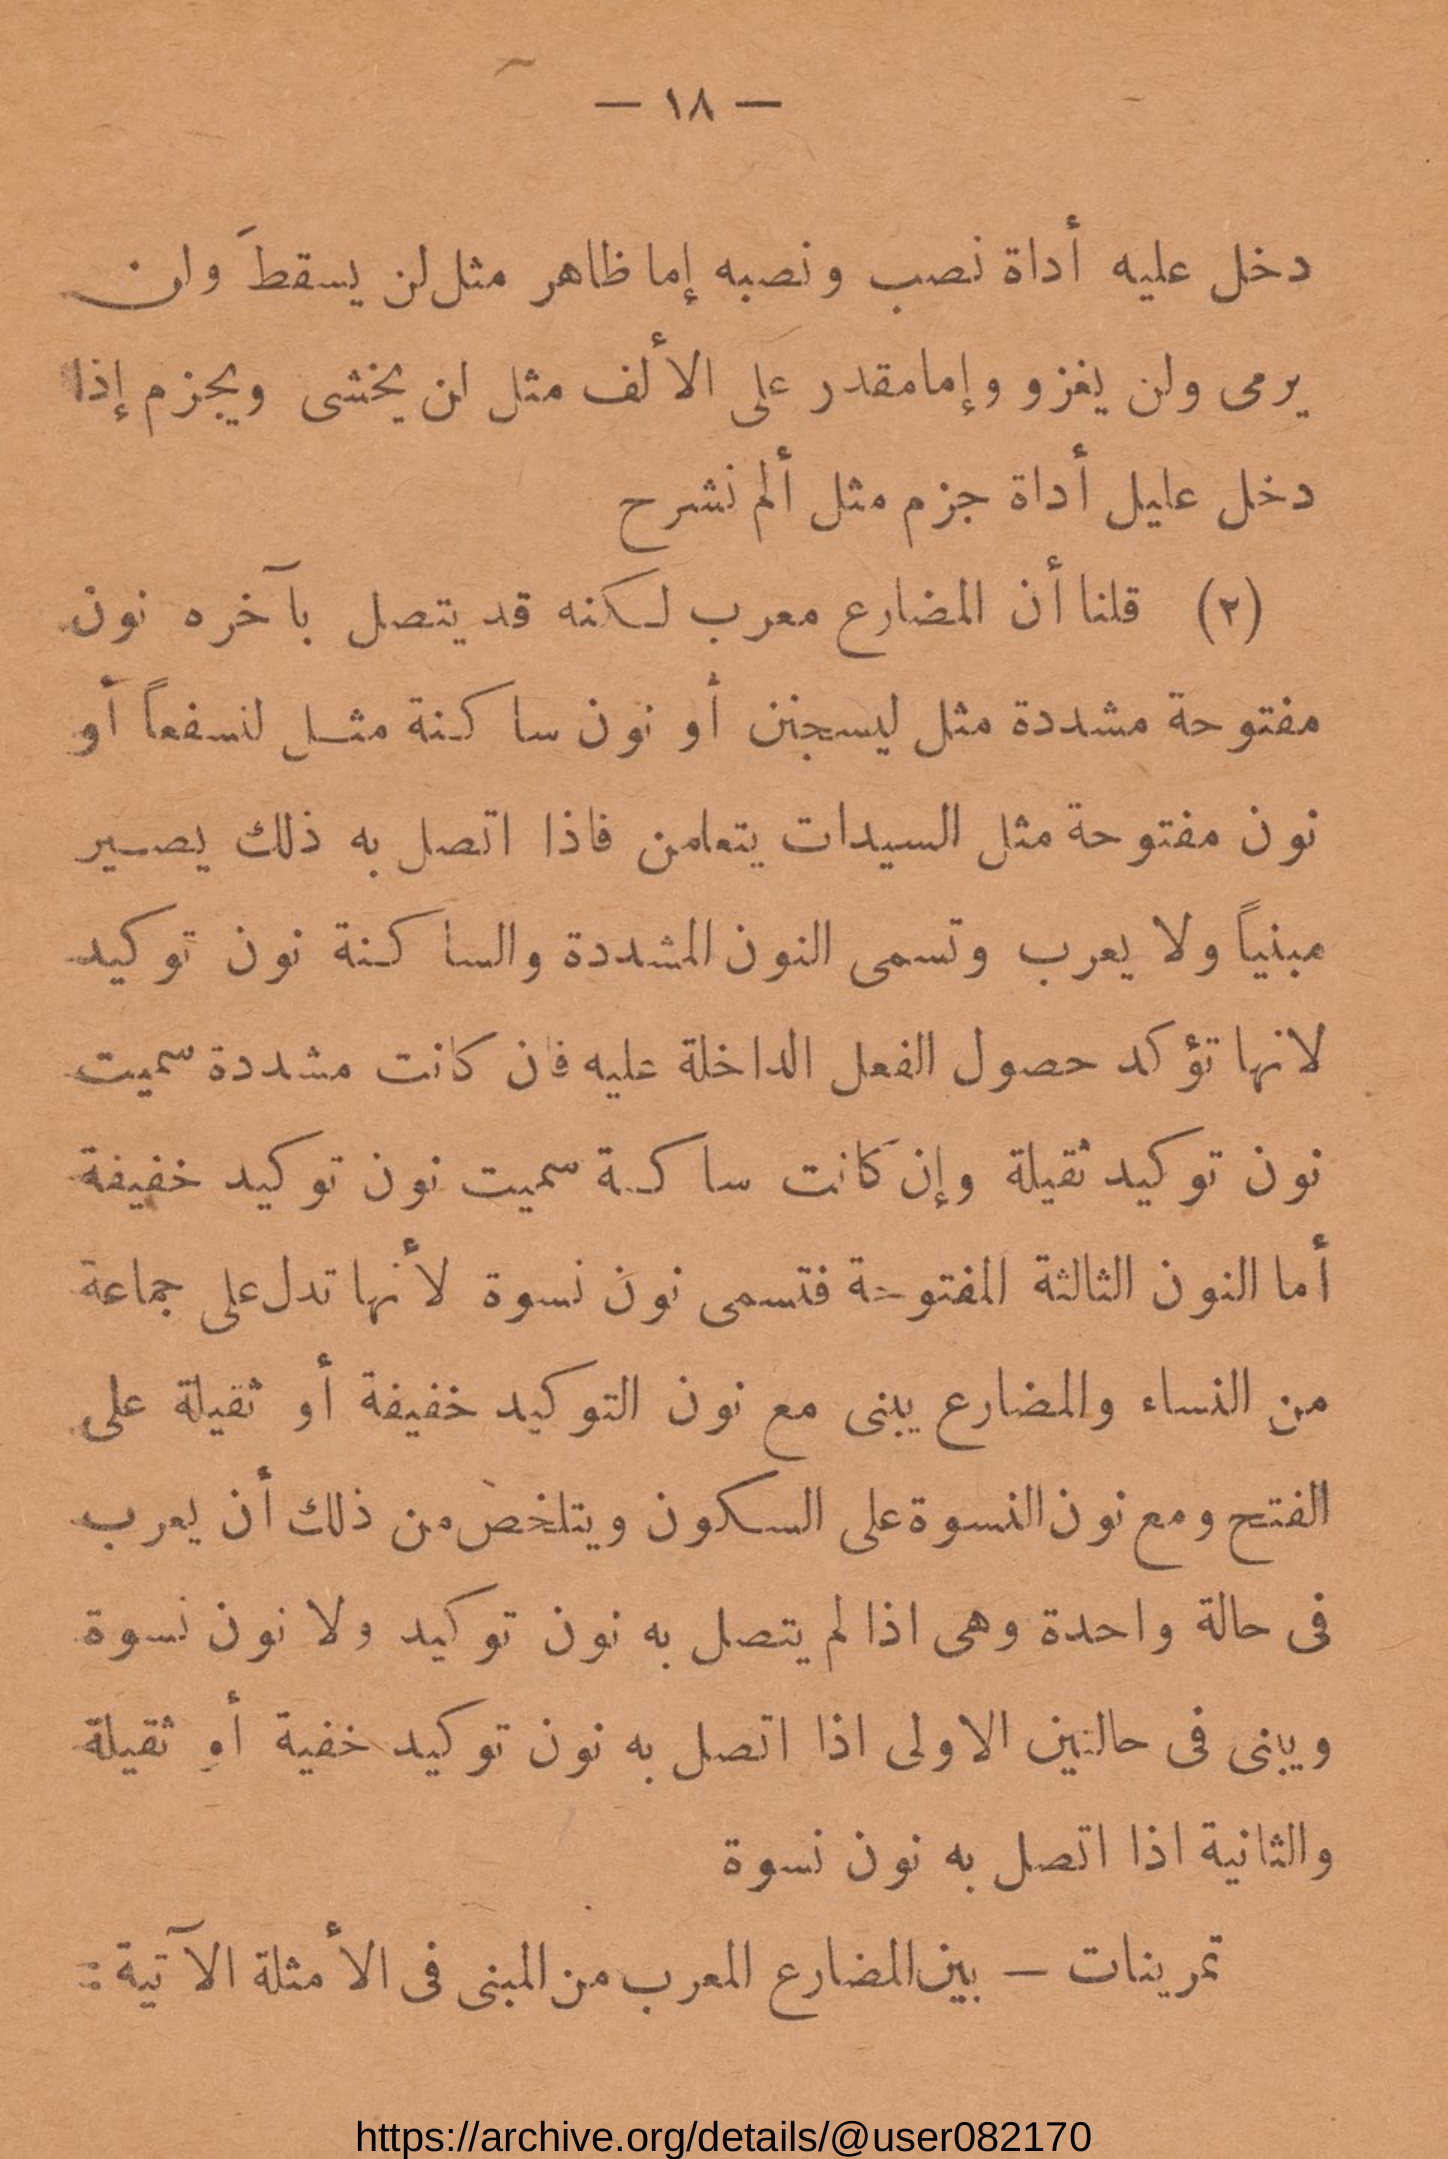 — ١٨ —
دخل عليه أداة نصب ونصبه إما ظاهر مثل لن يسقطَ ولن
يرمى ولن يغزو وإما مقدر على الألف مثل لن يخشى ويجزم إذا
دخل عليل أداة جزم مثل ألم نشرح
(٢) قلنا أن المضارع معرب لكنه قد يتصل بآخره نون
مفتوحة مشددة مثل ليسجنن أو نون ساكنة مثل لنسفعاً أو
نون مفتوحة مثل السيدات يتعامن فاذا اتصل به ذلك يصير
مبنياً ولا يعرب وتسمى النون المشددة والساكنة نون توكيد
لانها تؤكد حصول الفعل الداخلة عليه فان كانت مشددة سميت
نون توكيد ثقيلة وإن كانت ساكنة سميت نون توكيد خفيفة
أما النون الثالثة المفتوحة فتسمى نون نسوة لأنها تدل على جماعة
من النساء والمضارع يبنى مع نون التوكيد خفيفة أو ثقيلة على
الفتح ومع نون النسوة على السكون ويتلخص من ذلك أن يعرب
فى حالة واحدة وهى اذا لم يتصل به نون توكيد ولا نون نسوة
ويبنى فى حالتين الاولى اذا اتصل به نون توكيد خفية أو ثقيلة
والثانية اذا اتصل به نون نسوة
تمرينات — بين المضارع المعرب من المبنى فى الأمثلة الآتية :
https://archive.org/details/@user082170